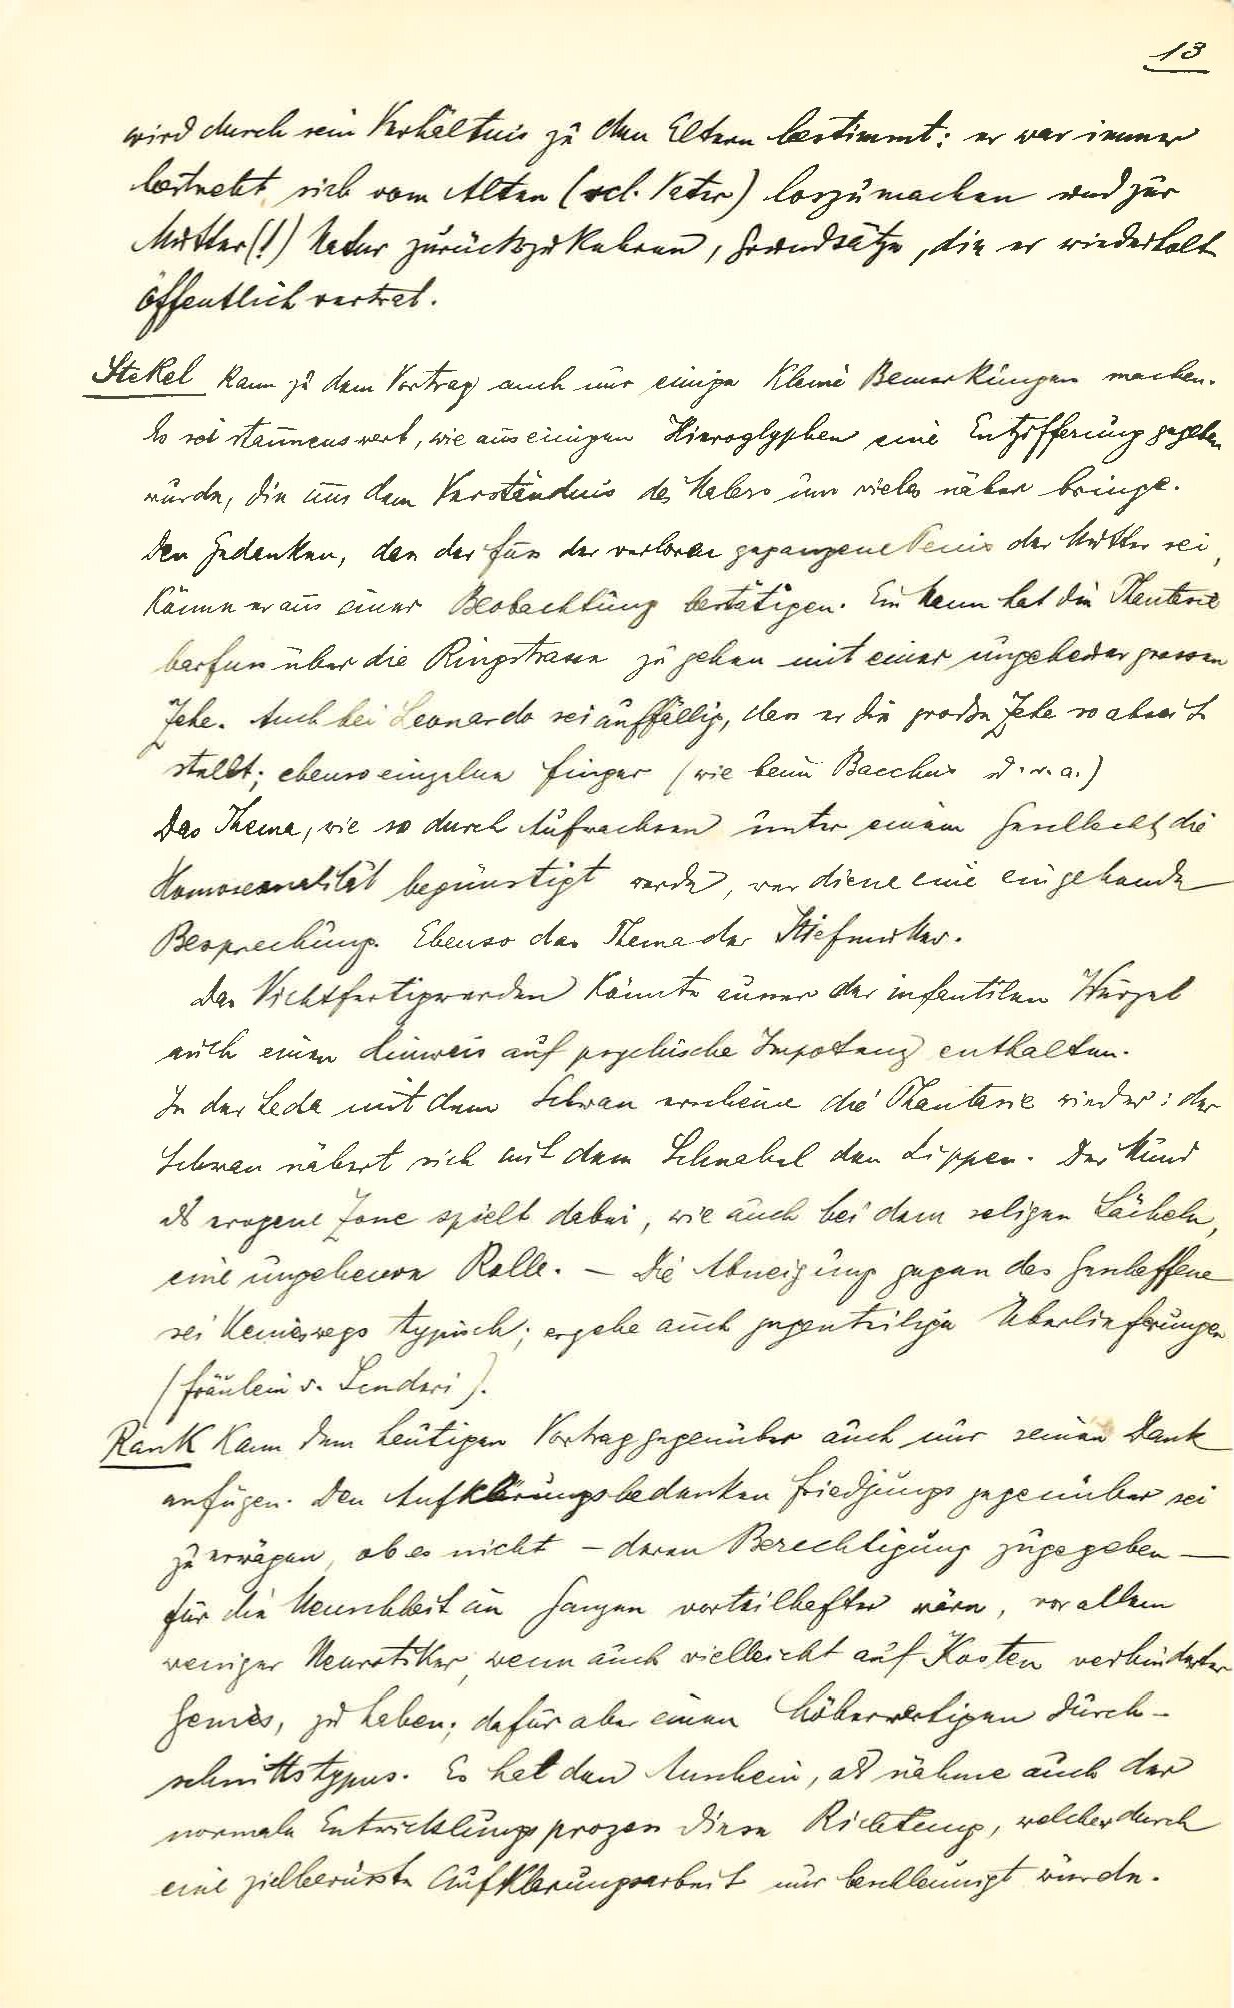 13
wird durch sein Verhältnis zu den Eltern bestimmt: er war immer
bestrebt, sich vom Alten (scl. Vater) loszumachen und zur
Mutter(!) Natur zurückzukehren, Grundsätze, die er wiederholt
öffentlich vertrat.
Stekel kann zu dem Vortrag auch nur einige kleine Bemerkungen machen.
Es sei staunenswert, wie aus einigen Hieroglyphen eine Entzifferung gegeben
wurde, die uns dem Verständnis des Malers um vieles näher bringe.
Den Gedanken, dass der Fuss der verloren gegangene Penis der Mutter sei,
könne er aus einer Beobachtung bestätigen. Ein Mann hat die Phantasie
barfuss über die Ringstrasse zu gehen mit einer ungeheuer grossen
Zehe. Auch bei Leonardo sei auffällig, dass er die große Zehe so abseits
stellt; ebenso einzelne Finger (wie beim Bacchus u. v. a.)
Das Thema, wie so durch Aufwachsen unter einem Geschlecht die
Homosexualität begünstigt werde, verdiene eine eingehende
Besprechung. Ebenso das Thema der Stiefmutter.
Das Nichtfertigwerden könnte ausser der infantilen Wurzel
auch einen Hinweis auf psychische Impotenz enthalten.
In der Leda mit dem Schwan erscheine die Phantasie wieder: der
Schwan nähert sich mit dem Schnabel den Lippen. Der Mund
als erogene Zone spielt dabei, wie auch bei dem seligen Lächeln,
eine ungeheure Rolle. – Die Abneigung gegen das Geschaffene
sei keineswegs typisch; es gebe auch gegenteilige Überlieferungen
(Fräulein v. Scuderi).
Rank kann dem heutigen Vortrag gegenüber auch nur seinen Dank
anfügen. Den Aufklärungsbedenken Friedjungs gegenüber sei
zu erwägen, ob es nicht – deren Berechtigung zugegeben –
für die Menschheit im Ganzen vorteilhafter wäre, vor allem
weniger Neurotiker, wenn auch vielleicht auf Kosten verhinderter
Genies, zu haben; dafür aber einen höherwertigen Durch-
schnittstypus. Es hat den Anschein, als nähme auch der
normale Entwicklungsprozess diese Richtung, welcher durch
eine zielbewusste Aufklärungsarbeit nur beschleunigt würde.